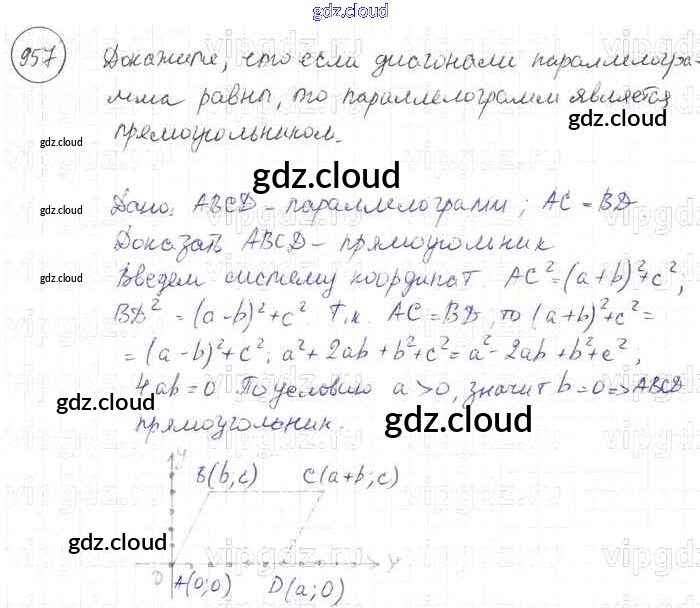 gdz.cloud
957 Докажите, что если диагонали параллелогра-
мма равны, то параллелограмм является
gdz.cloud
прямоугольником.
gdz.cloud
gdz.cloud
gdz.cloud
Дано: ABCD - параллелограмм; AC = BD
Доказать ABCD - прямоугольник
Введем систему координат. AC² = (a+b)²+c²;
BD² = (a-b)²+c². Т.к. AC = BD, то (a+b)²+c² =
= (a-b)²+c²; a²+2ab+b²+c² = a²-2ab+b²+c²;
4ab = 0 По условию a>0, значит b=0 => ABCD
gdz.cloud
gdz.cloud
прямоугольник.
y
B(b;c) C(a+b;c)
gdz.cloud
gdz.cloud
O A(0;0) D(a;0)